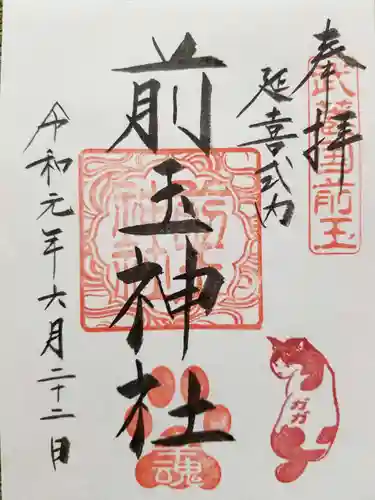 奉拝
武蔵国前玉
延喜式内
前玉神社
令和元年六月二十二日
ガガ
魂